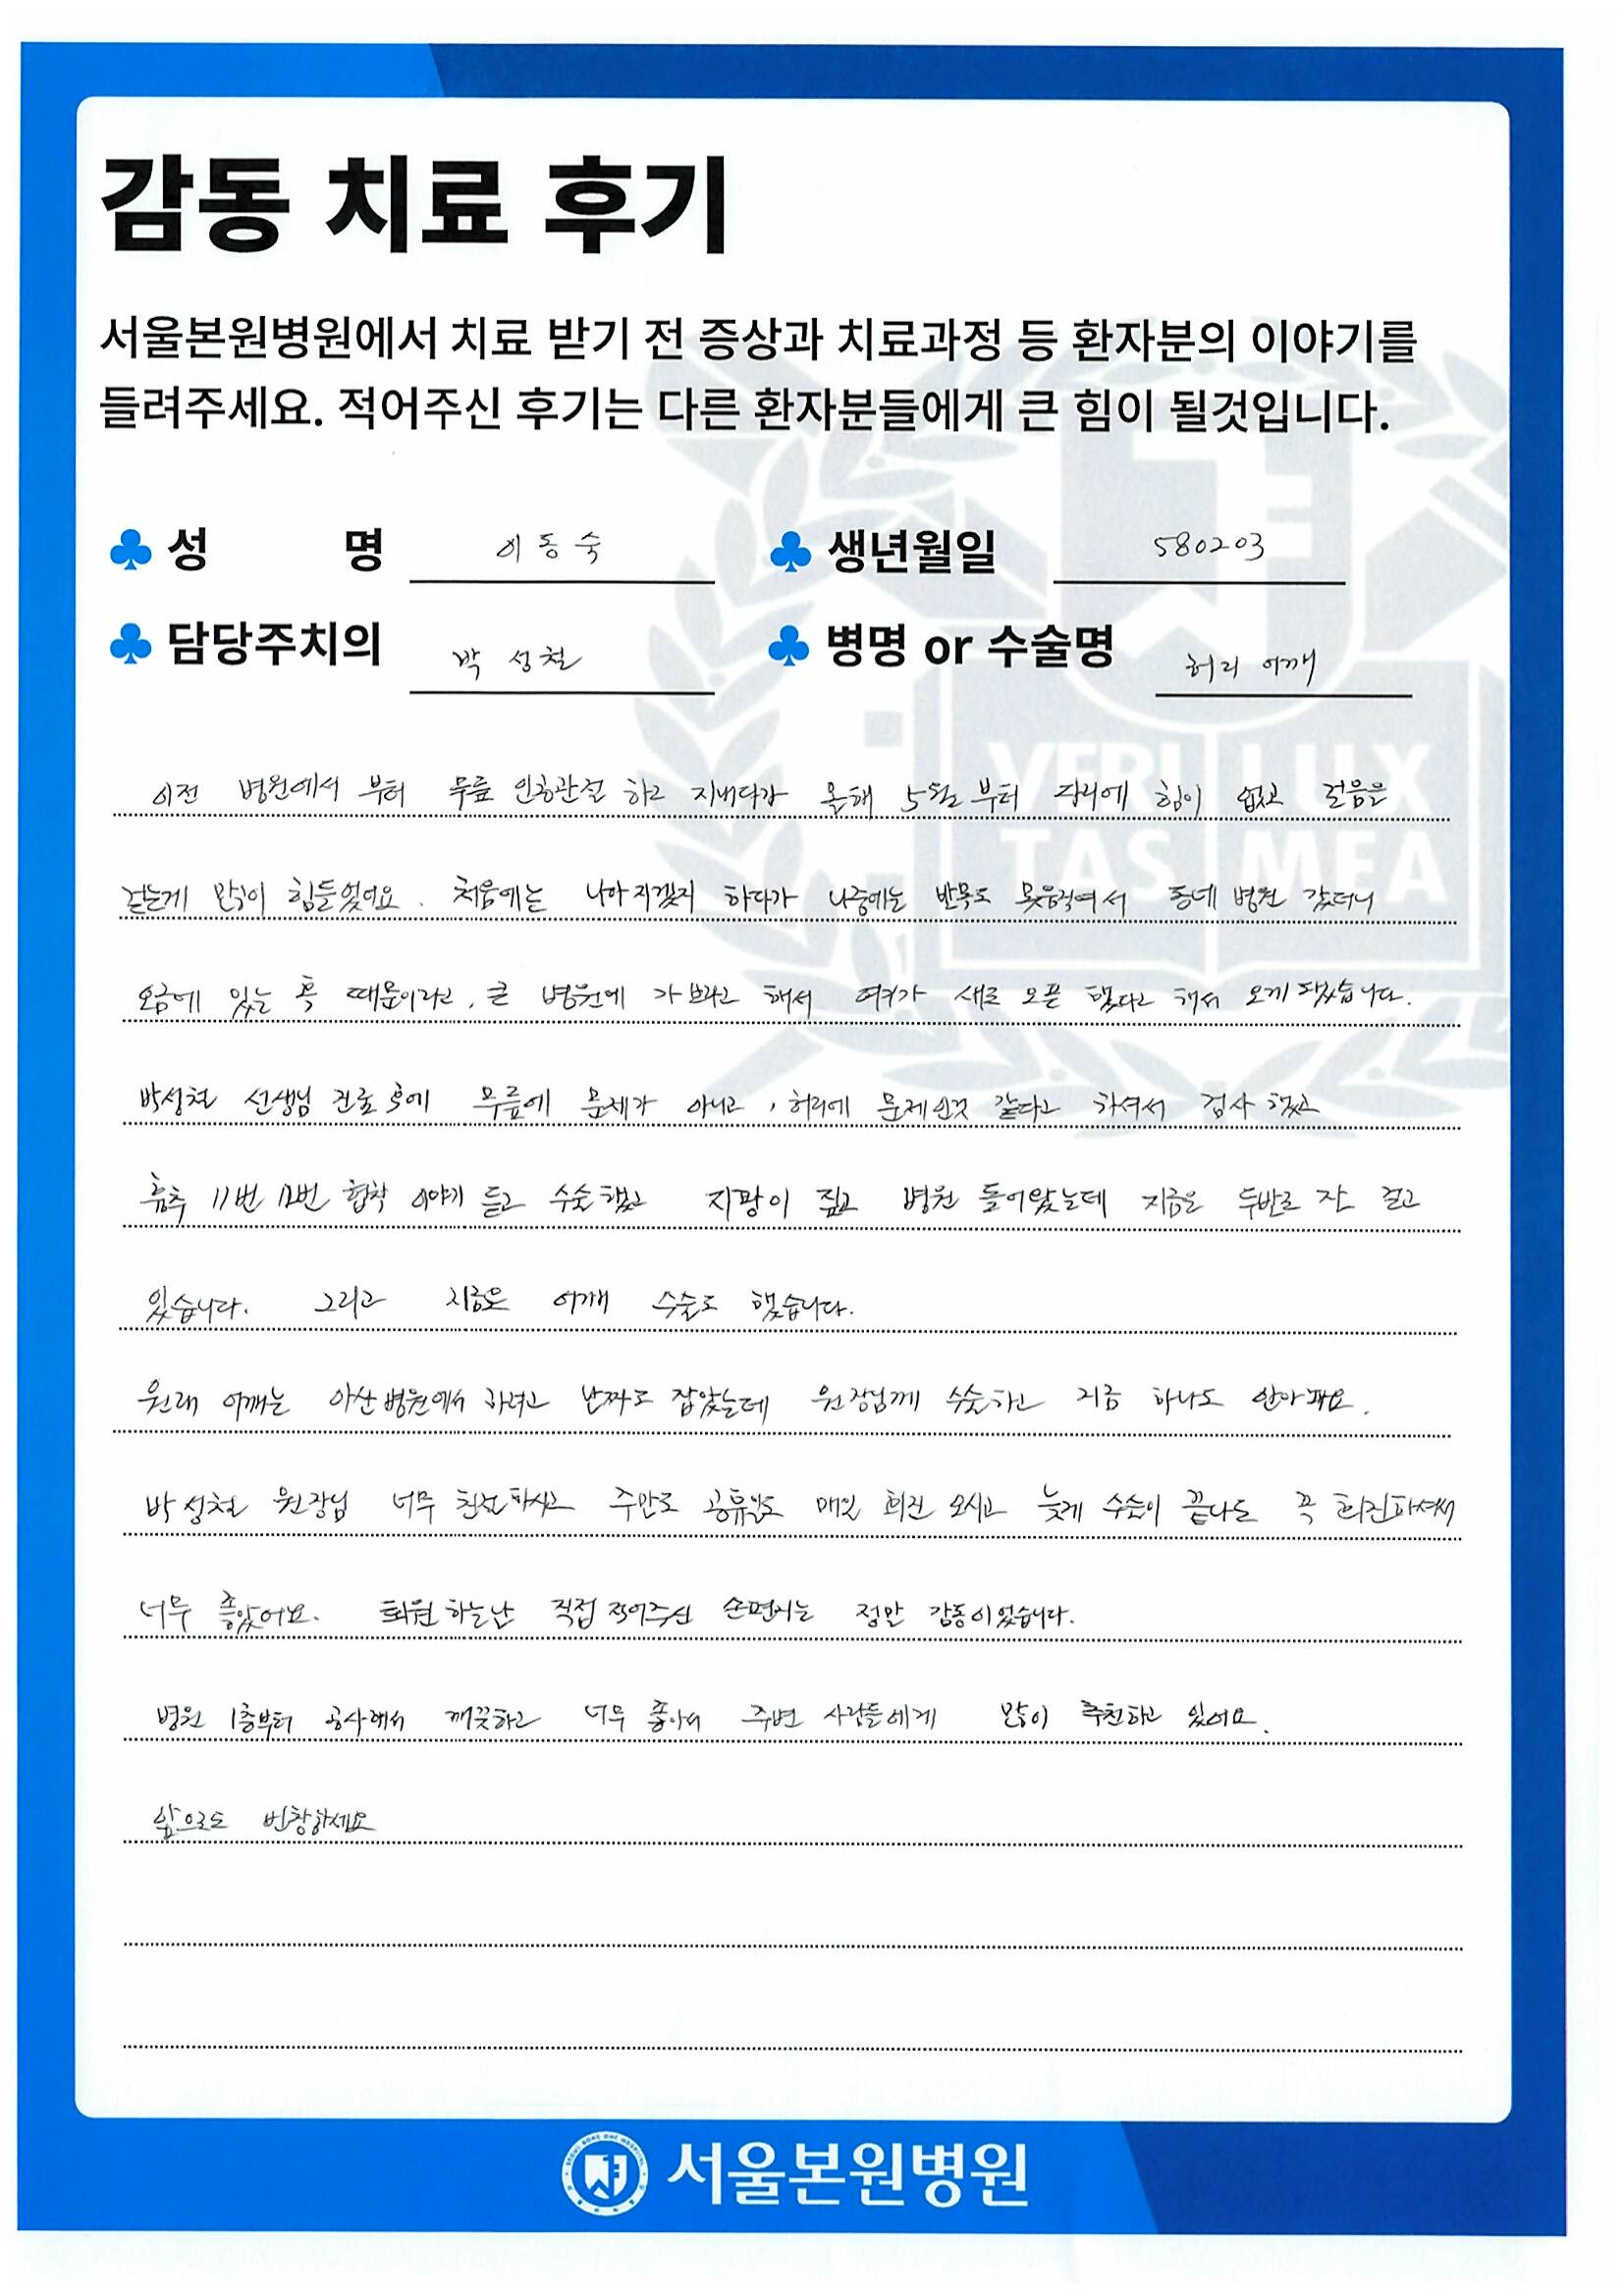 감동 치료 후기
서울본원병원에서 치료 받기 전 증상과 치료과정 등 환자분의 이야기를
들려주세요. 적어주신 후기는 다른 환자분들에게 큰 힘이 될것입니다.
성 명 이동숙 생년월일 580203
담당주치의 박성철 병명 or 수술명 허리 어깨
VERI LUX
TAS MEA
이전 병원에서 부터 무릎 인공관절 하고 지내다가 올해 5월부터 다리에 힘이 없고 걸음은
걷는게 많이 힘들었어요. 처음에는 나아지겠지 하다가 나중에는 발목도 못움직여서 동네 병원 갔더니
오금에 있는 혹 때문이라고, 큰 병원에 가보라고 해서 여기가 새로 오픈 했다고 해서 오게 됐습니다.
박성철 선생님 진료 후에 무릎에 문제가 아니고, 허리에 문제인것 같다고 하셔서 검사 했고
흉추 11번 12번 협착 이야기 듣고 수술 했고 지팡이 짚고 병원 들어왔는데 지금은 두발로 잘 걷고
있습니다. 그리고 지금은 어깨 수술도 했습니다.
원래 어깨는 아산병원에서 하려고 날짜도 잡았는데 원장님께 수술하고 지금 하나도 안아파요.
박성철 원장님 너무 친절하시고 주말도 공휴일도 매일 회진 오시고 늦게 수술이 끝나도 꼭 회진하셔서
너무 좋았어요. 퇴원 하는날 직접 적어주신 손편지는 정말 감동이었습니다.
병원 1층부터 공사해서 깨끗하고 너무 좋아서 주변 사람들에게 많이 추천하고 있어요.
앞으로도 번창하세요
서울본원병원